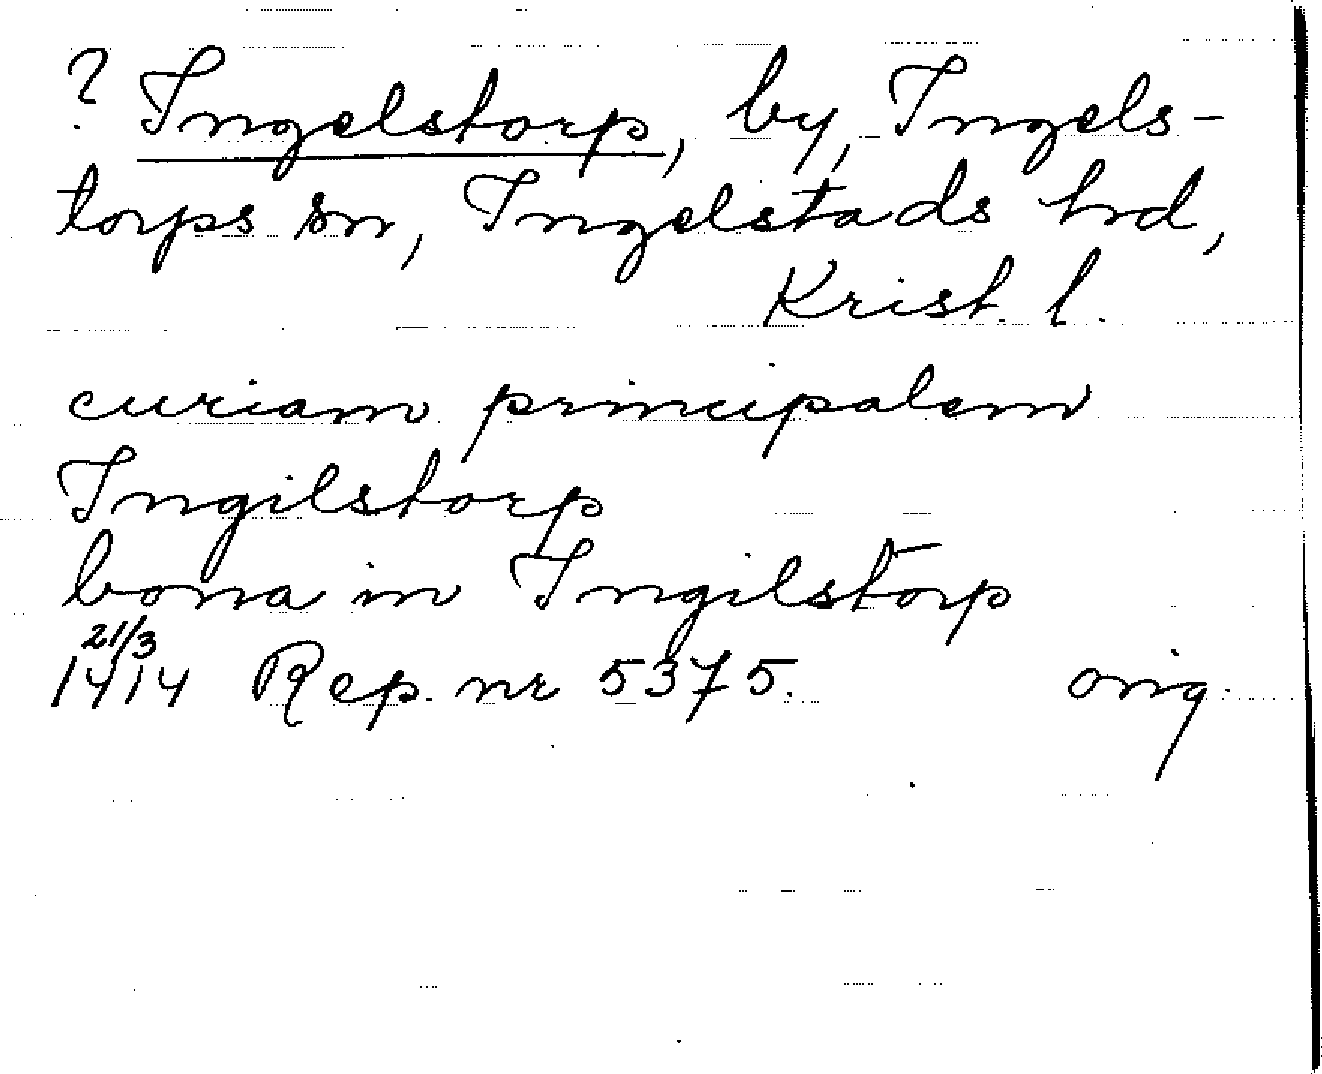 ? Ingelstorp, by, Ingels-
torps sn, Ingelstads hrd,
Krist. l.
curiam principalem
Ingilstorp
bona in Ingilstorp
21/3
1414 Rep. nr 5375. orig.